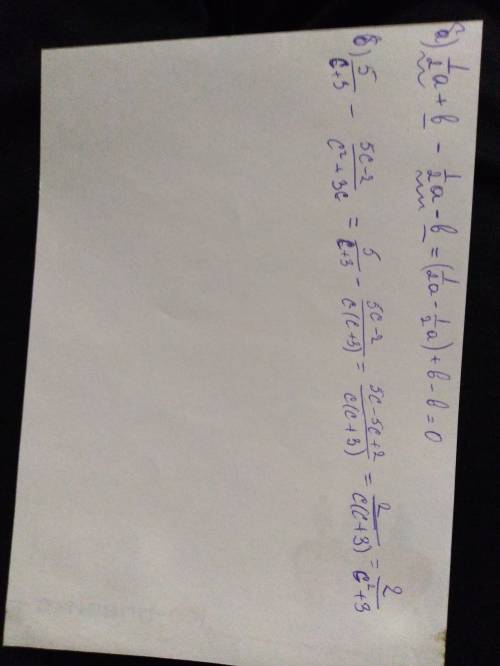 а) 1/2a + b - 1/2a - b = (1/2a - 1/2a) + b - b = 0
б) 5/(c+3) - (5c-2)/(c²+3c) = 5/(c+3) - (5c-2)/(c(c+3)) = (5c-5c+2)/(c(c+3)) = 2/(c(c+3)) = 2/(c²+3)